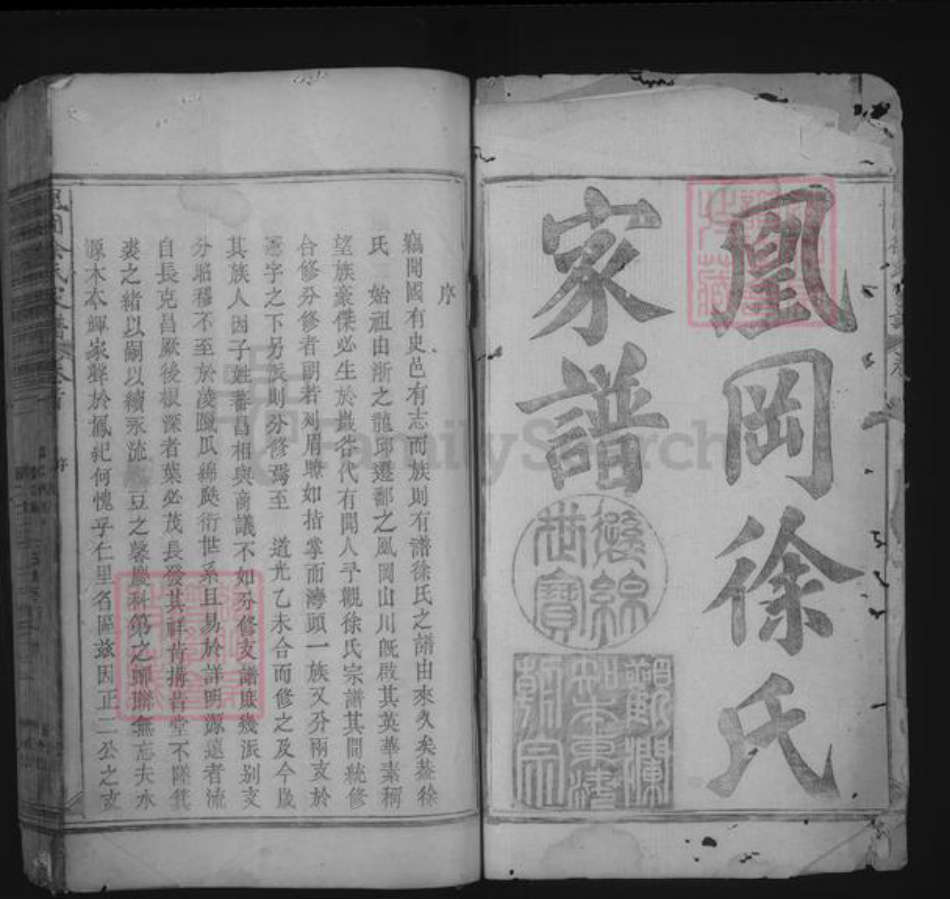 凰岡徐氏
家譜
序
竊聞國有史邑有志而族則有譜徐氏之譜由來久矣葢徐
氏 始祖由浙之龍邱遷鄱之凰岡山川旣啟其英華素稱
望族豪傑必生於巖谷代有聞人予觀徐氏宗譜其間統修
合修分修者朗若列眉瞭如指掌而灣頭一族又分兩支於
憲字之下另派則分修焉至 道光乙未合而修之及今歲
其族人因子姓蕃昌相與商議不如分修支譜庶幾派别支
分昭穆不至於凌躐瓜綿瓞衍世系且易於詳明源遠者流
自長克昌厥後根深者葉必茂長發其祥肯搆肯堂不隳箕
裘之緒以嗣以續永流 豆之馨慶科第之聯聯無忘夫水
源木本輝家聲於鳳紀何愧乎仁里名區茲因正二公之支
凰岡徐氏家譜 卷首 序
FamilySearch